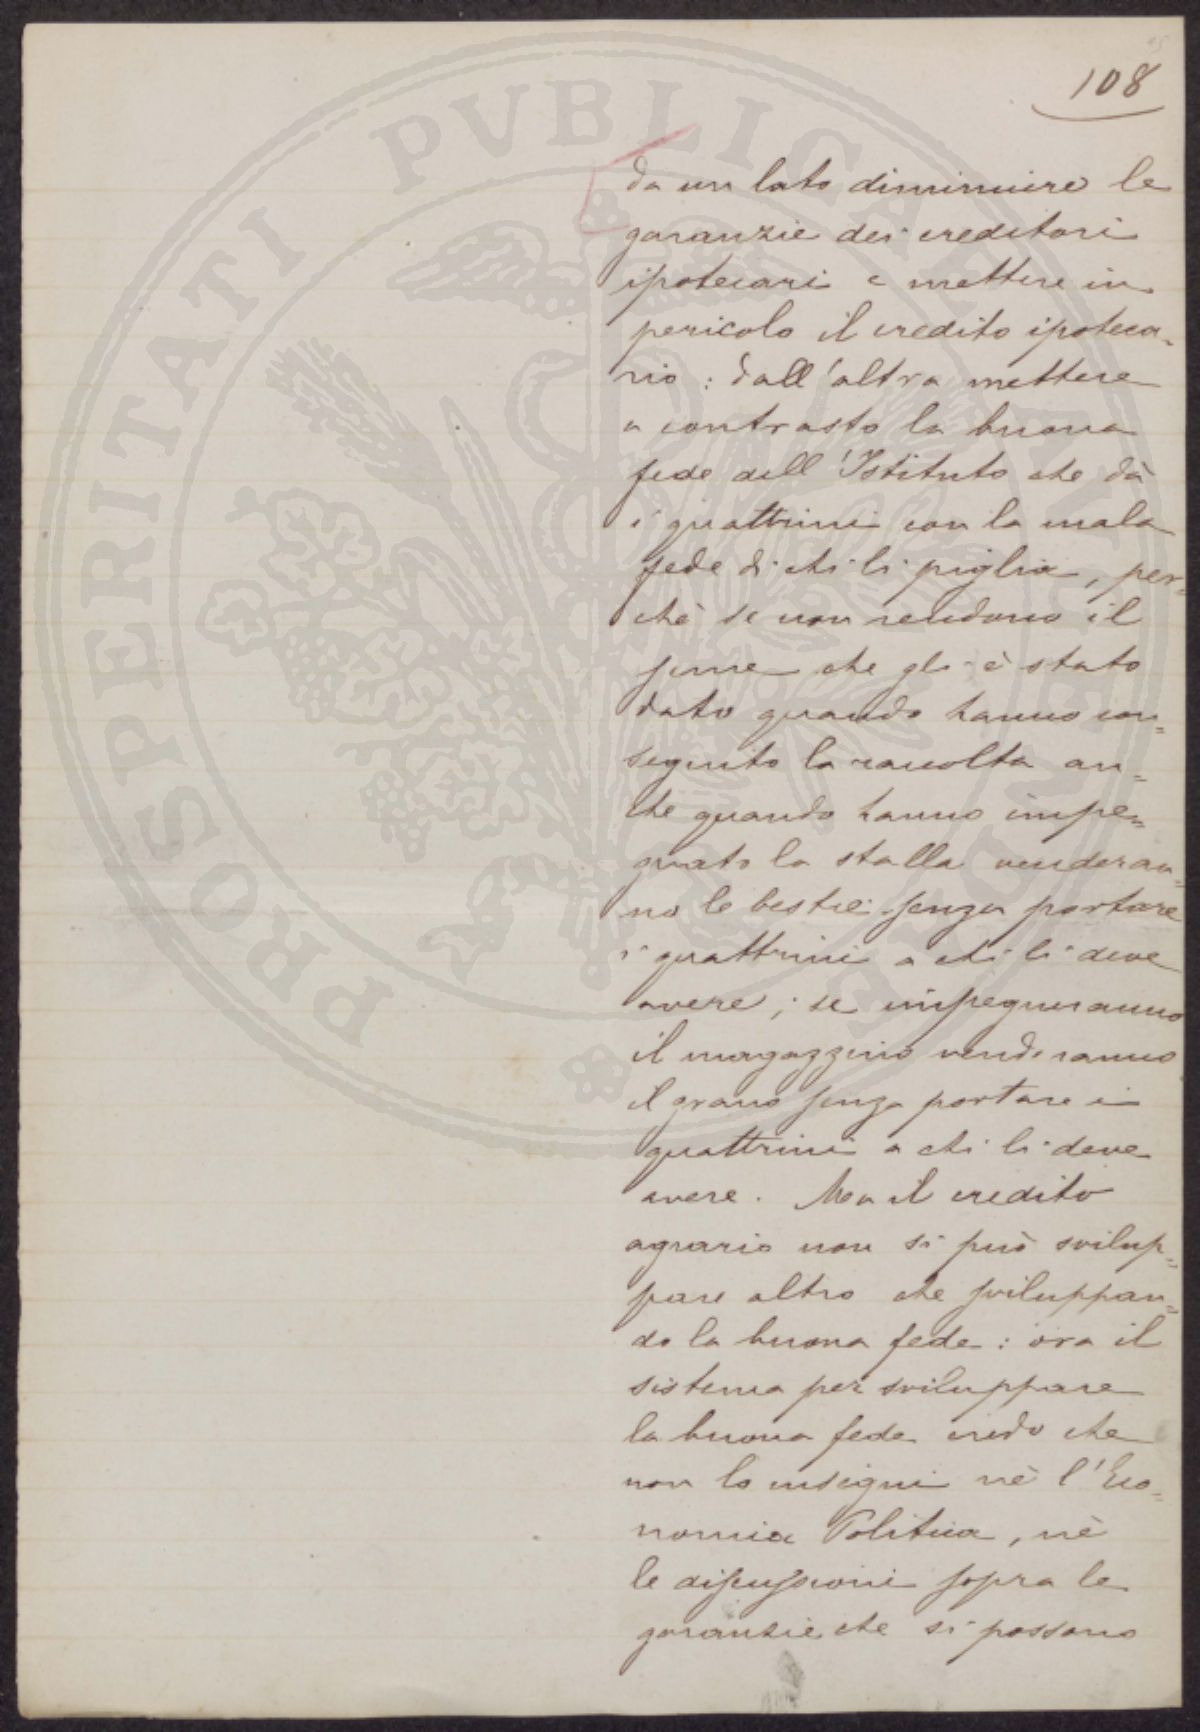 108
da un lato diminuire le
garanzie dei creditori
ipotecari e mettere in
pericolo il credito ipoteca=
rio: dall'altra mettere
a contrasto la buona
fede dell'Istituto che dà
i quattrini con la mala
fede di chi li piglia, per=
chè se non rendono il
seme che gli è stato
dato quando hanno con=
seguito la raccolta an=
che quando hanno impe=
gnato la stalla venderan=
no le bestie senza portare
i quattrini a chi li deve
avere; se impegneranno
il magazzino venderanno
il grano senza portare i
quattrini a chi li deve
avere. Ma il credito
agrario non si può svilup=
pare altro che sviluppan=
do la buona fede: ora il
sistema per sviluppare
la buona fede credo che
non lo insegni nè l'Eco=
nomia Politica, nè
le discussioni sopra le
garanzie che si possono
PROSPERITATI PVBLICAE AVGENDAE